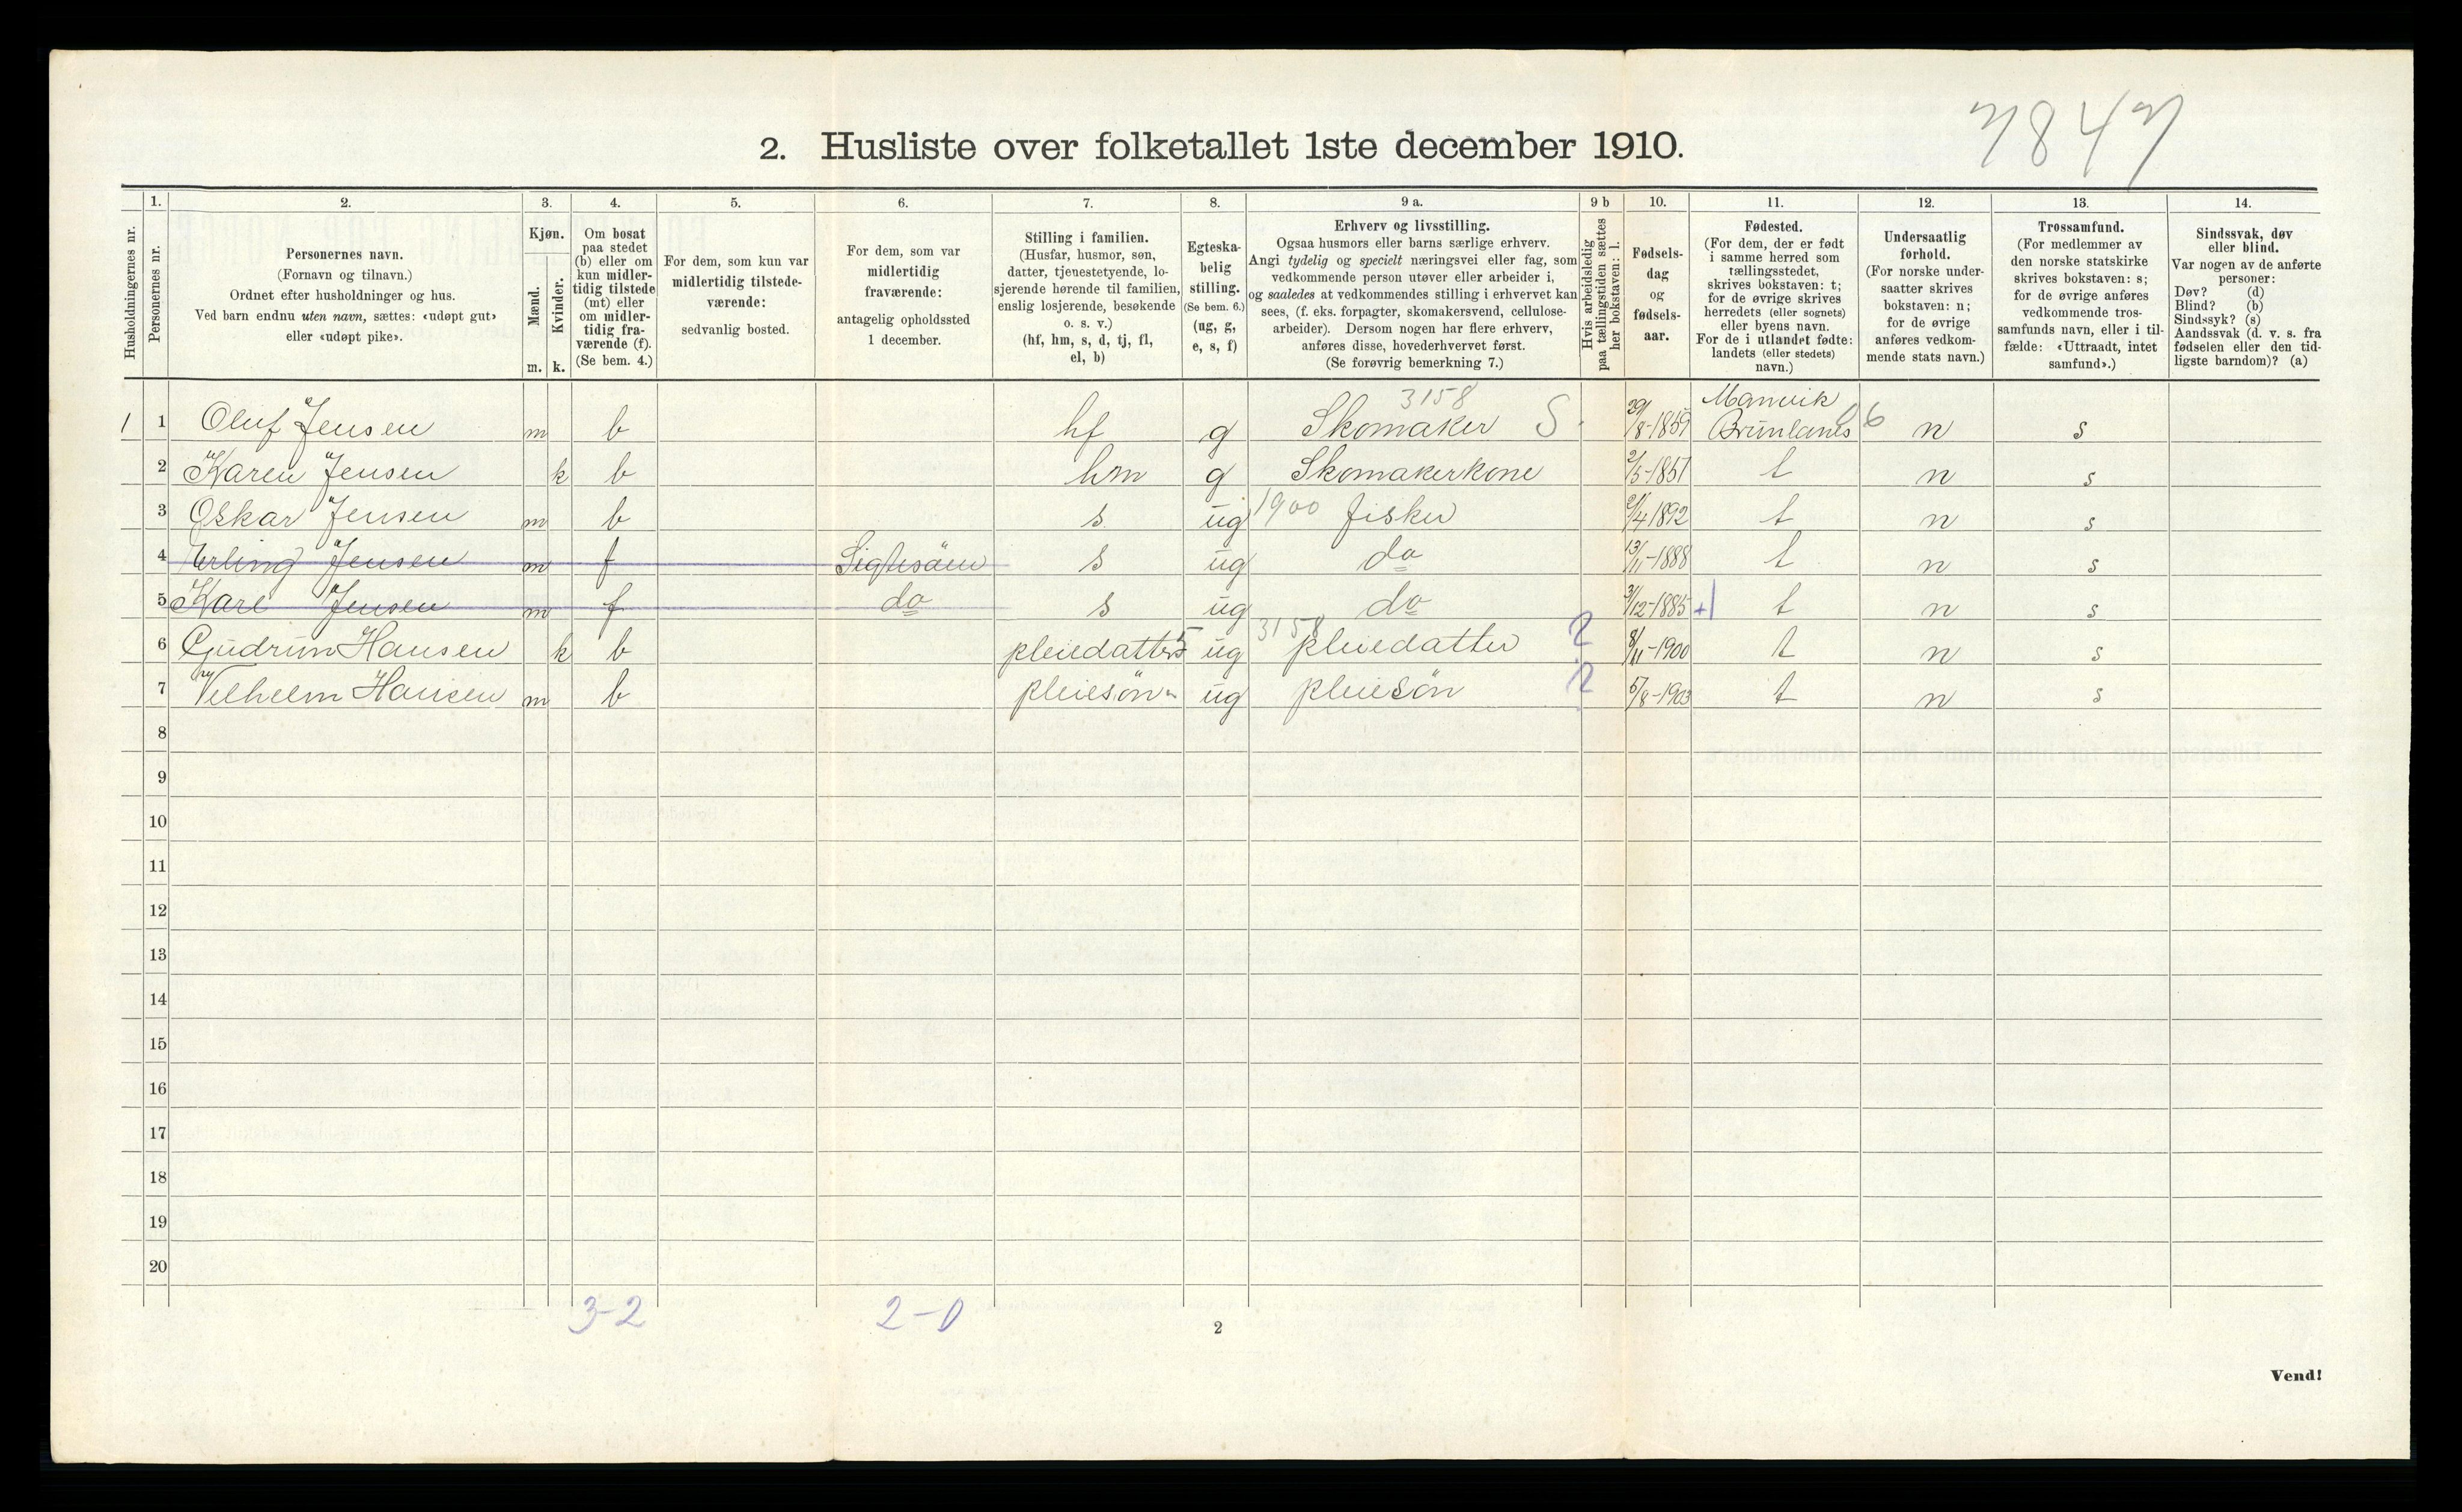 7847
2. Husliste over folketallet 1ste december 1910.
Husholdningernes nr.
1.
Personernes nr.
2.
Personernes navn.
(Fornavn og tilnavn.)
Ordnet efter husholdninger og hus.
Ved barn endnu uten navn, sættes: «udøpt gut»
eller «udøpt pike».
3.
Kjøn.
Mænd.
Kvinder.
m. k.
4.
Om bosat
paa stedet
(b) eller om
kun midler-
tidig tilstede
(mt) eller
om midler-
tidig fra-
værende (f).
(Se bem. 4.)
5.
For dem, som kun var
midlertidig tilstede-
værende:
sedvanlig bosted.
6.
For dem, som var
midlertidig
fraværende:
antagelig opholdssted
1 december.
7.
Stilling i familien.
(Husfar, husmor, søn,
datter, tjenestetyende, lo-
sjerende hørende til familien,
enslig losjerende, besøkende
o. s. v.)
(hf, hm, s, d, tj, fl,
el, b)
8.
Egteska-
belig
stilling.
(Se bem. 6.)
(ug, g,
e, s, f)
9 a.
Erhverv og livsstilling.
Ogsaa husmors eller barns særlige erhverv.
Angi tydelig og specielt næringsvei eller fag, som
vedkommende person utøver eller arbeider i,
og saaledes at vedkommendes stilling i erhvervet kan
sees, (f. eks. forpagter, skomakersvend, cellulose-
arbeider). Dersom nogen har flere erhverv,
anføres disse, hovederhvervet først.
(Se forøvrig bemerkning 7.)
9 b
Hvis arbeidsledig
paa tællingstiden sættes
her bokstaven: l.
10.
Fødsels-
dag
og
fødsels-
aar.
11.
Fødested.
(For dem, der er født
i samme herred som
tællingsstedet,
skrives bokstaven: t;
for de øvrige skrives
herredets (eller sognets)
eller byens navn.
For de i utlandet fødte:
landets (eller stedets)
navn.)
12.
Undersaatlig
forhold.
(For norske under-
saatter skrives
bokstaven: n;
for de øvrige
anføres vedkom-
mende stats navn.)
13.
Trossamfund.
(For medlemmer av
den norske statskirke
skrives bokstaven: s;
for de øvrige anføres
vedkommende tros-
samfunds navn, eller i til-
fælde: «Uttraadt, intet
samfund».)
14.
Sindssvak, døv
eller blind.
Var nogen av de anførte
personer:
Døv? (d)
Blind? (b)
Sindssyk? (s)
Aandssvak (d. v. s. fra
fødselen eller den tid-
ligste barndom)? (a)
3158 Manvik
1 1 Oluf Jensen m b hf g Skomaker S 29/8-1859 Brunlanes 06 n s
2 Karen Jensen k b hm g Skomakerkone 2/5-1851 t n s
3 Oskar Jensen m b s ug 1900 fisker 21/4 1892 t n s
4 Erling Jensen m f s ug do 13/11-1888 t n s
5 Karl Jensen m f do s ug do 31/12-1885 +1 t n s
6 Gudrun Hansen k b pleiedatter 5 ug 3158 pleiedatter 2 8/11-1900 t n s
7 Vilhelm Hansen m b pleiesön ug pleiesön 2 5/8-1903 t n s
8
9
10
11
12
13
14
15
16
17
18
19
20
3-2 2-0
2
Vend!